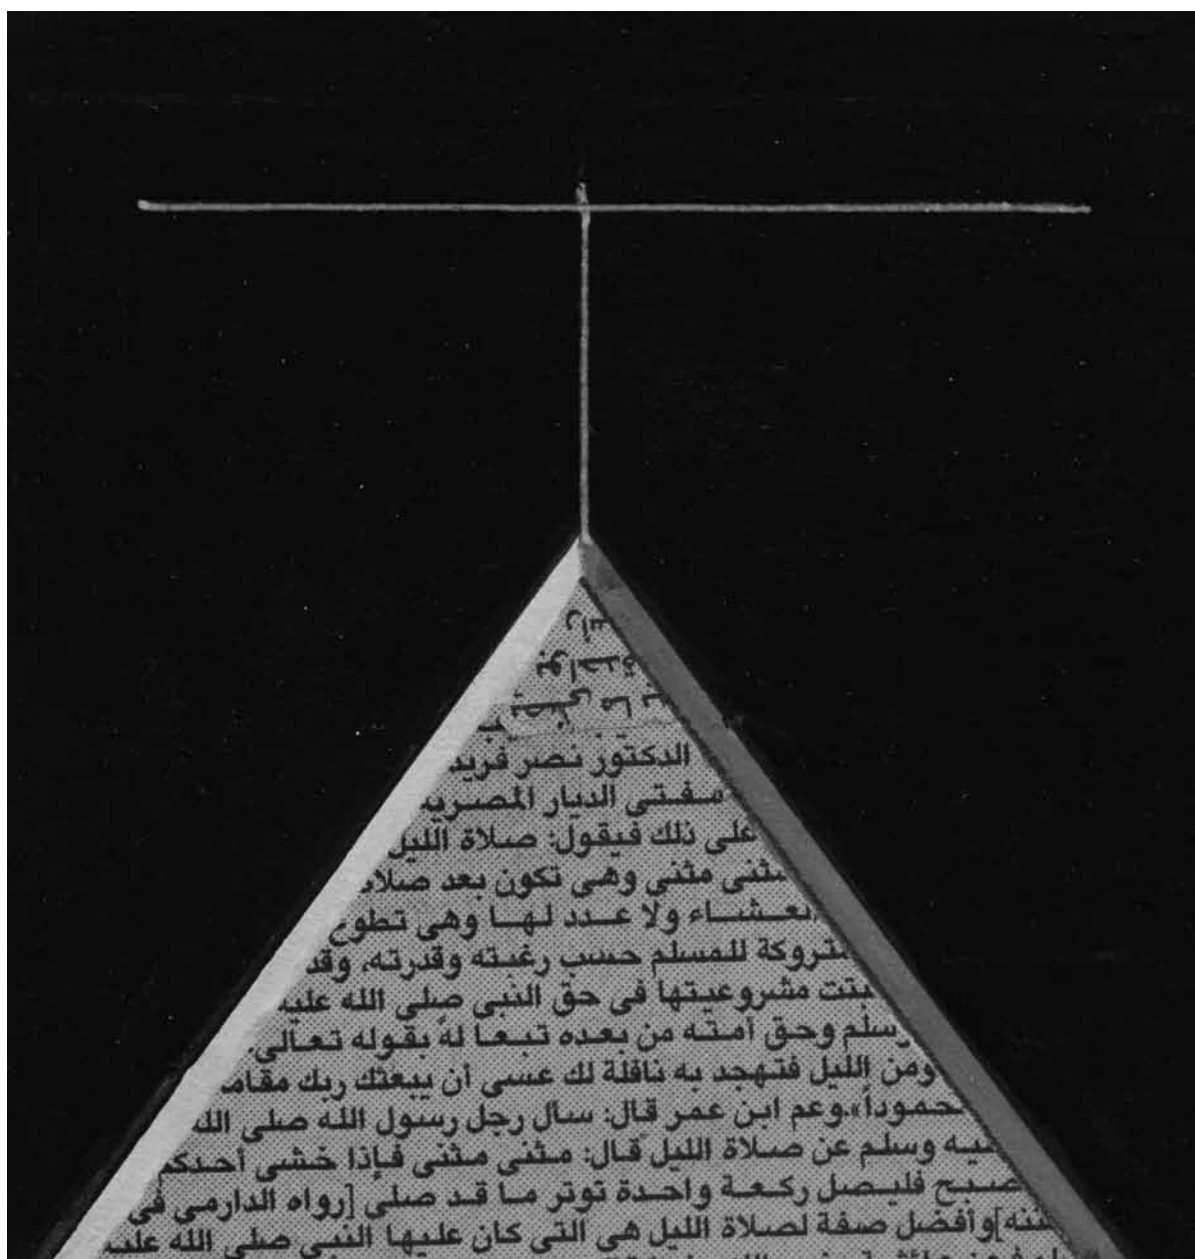 بواحدة
الدكتور نصر فريد
مفتى الديار المصرية
على ذلك فيقول: صلاة الليل
مثنى مثني وهى تكون بعد صلاة
العشاء ولا عدد لها وهى تطوع
متروكة للمسلم حسب رغبته وقدرته، وقد
ثبتت مشروعيتها فى حق النبى صلى الله عليه
وسلم وحق أمته من بعده تبعا له بقوله تعالي.
ومن الليل فتهجد به نافلة لك عسى أن يبعثك ربك مقاما
محموداً».وعم ابن عمر قال: سأل رجل رسول الله صلى الله
عليه وسلم عن صلاة الليل قال: مثنى مثنى فإذا خشى أحدكم
صبح فليصل ركعة واحدة توتر ما قد صلى [رواه الدارمى فى
سننه]وأفضل صفة لصلاة الليل هى التى كان عليها النبى صلى الله عليه